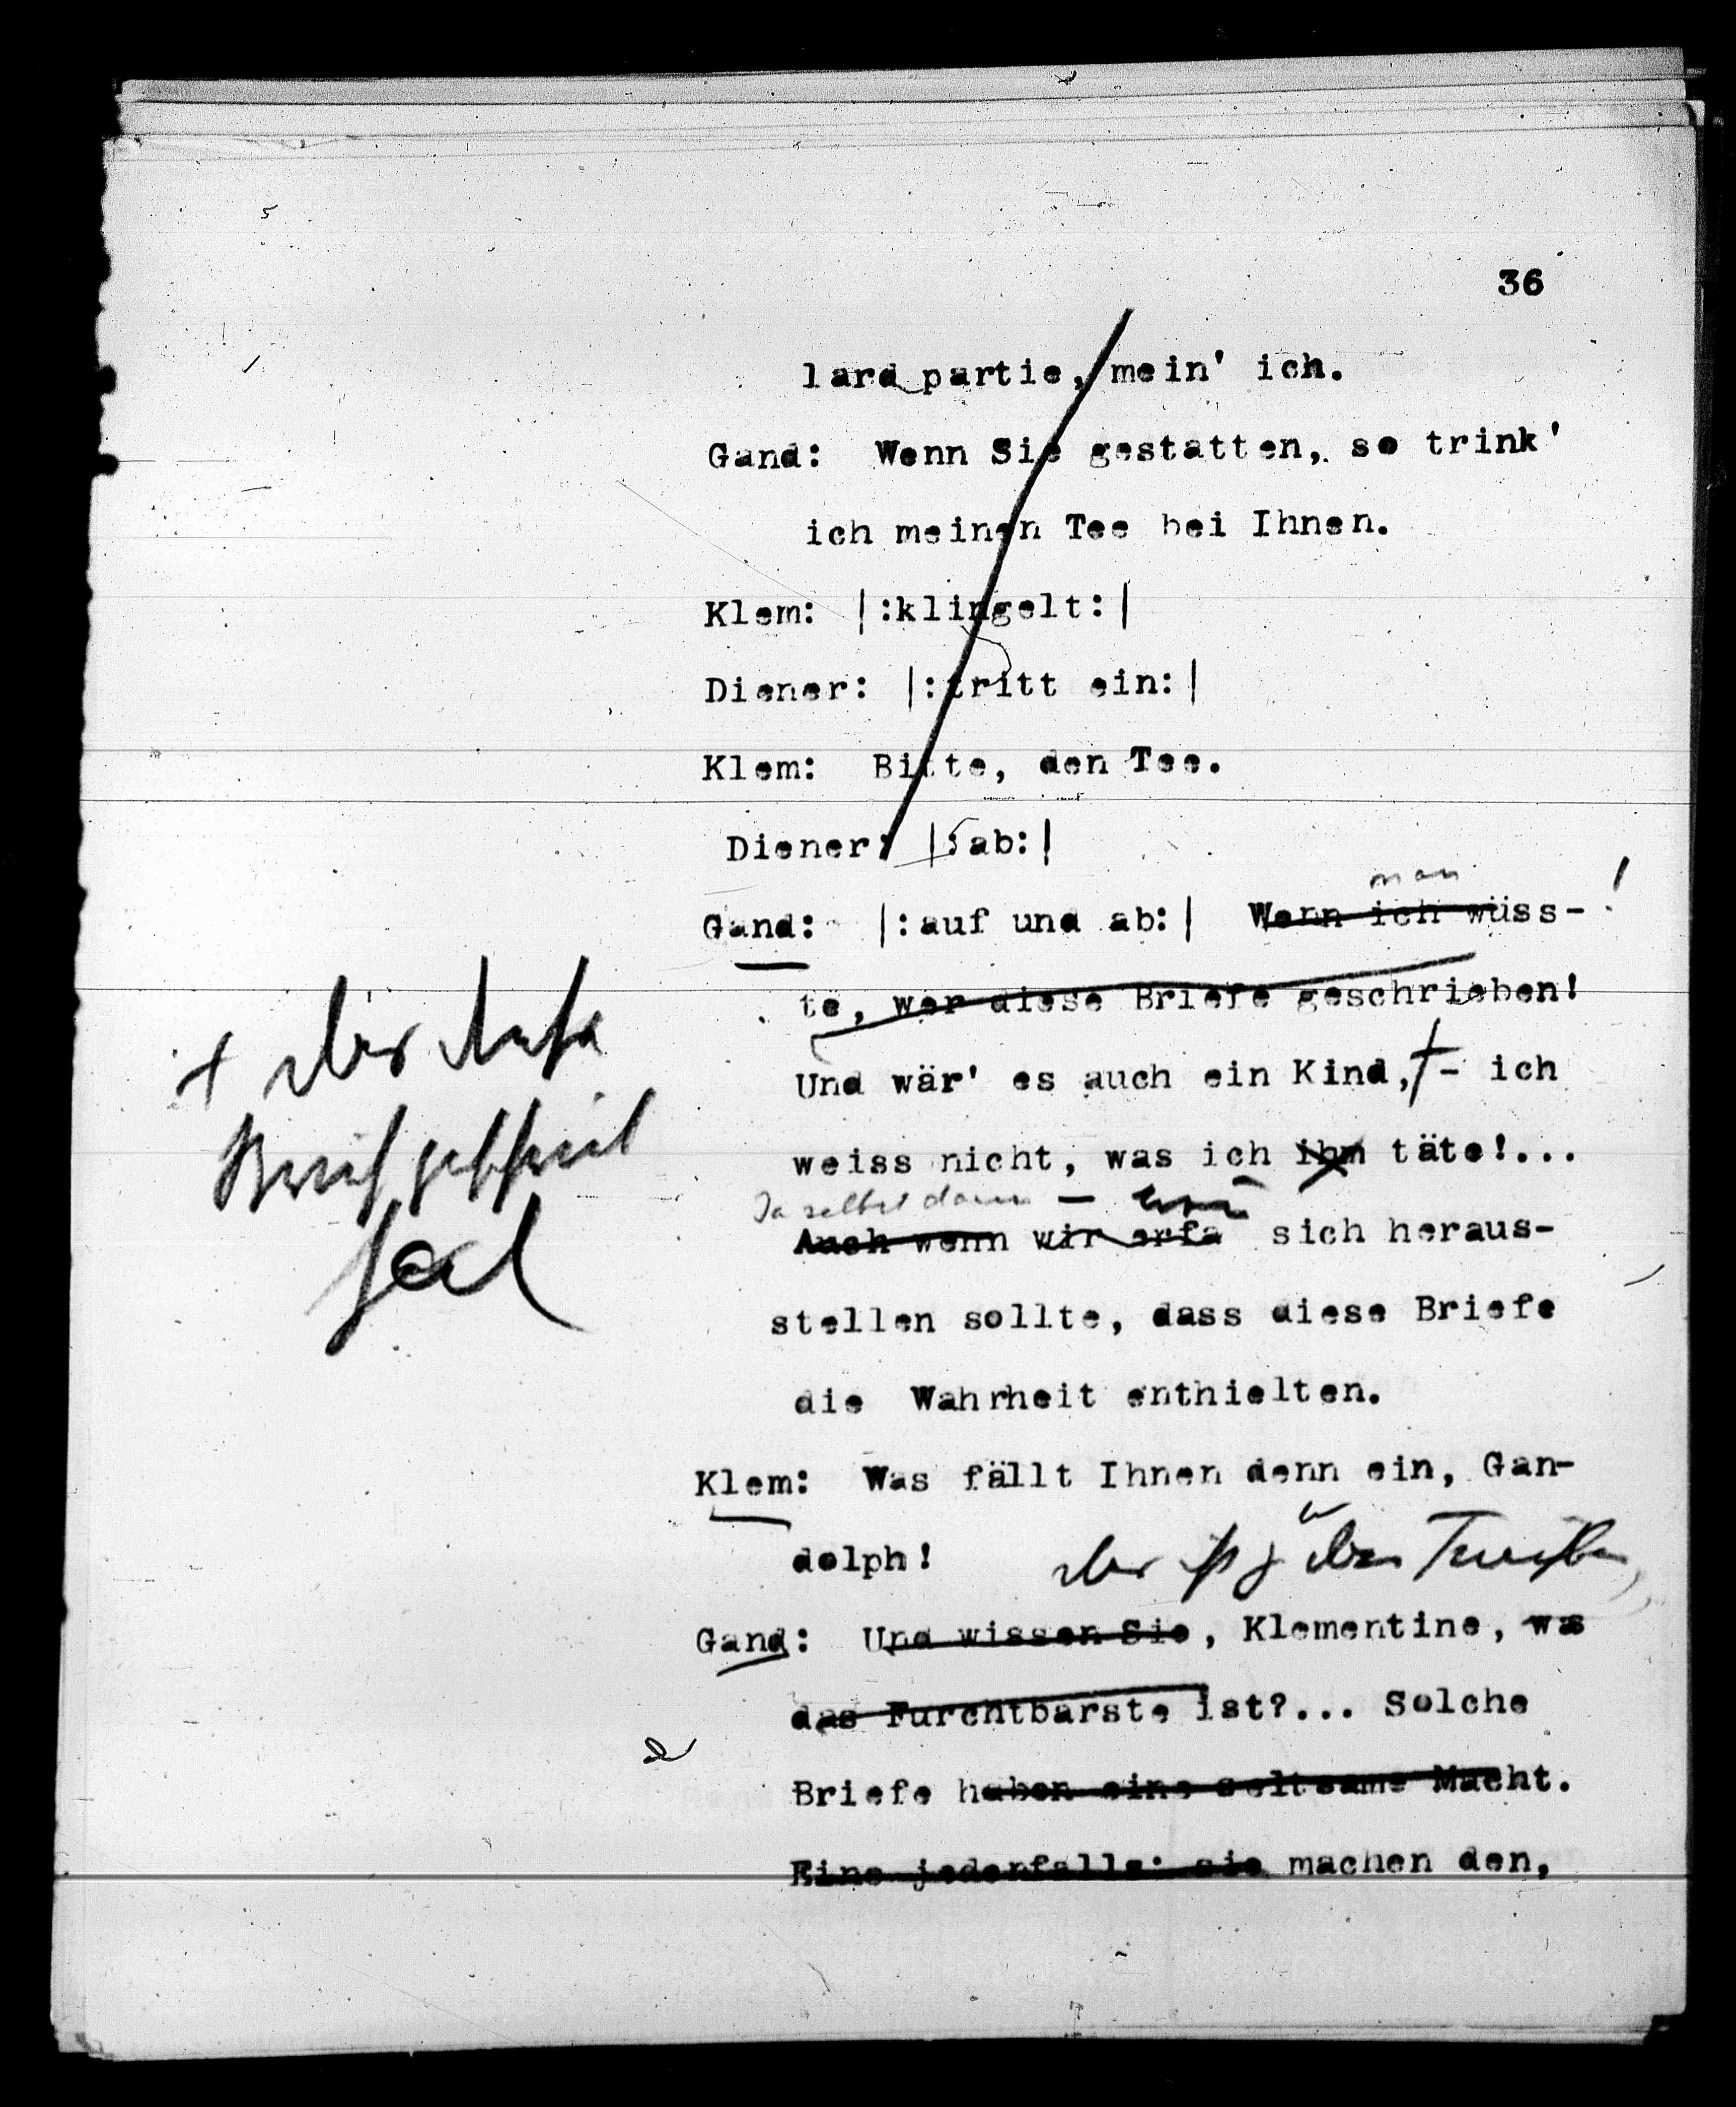 36
lard partie, mein' ich.
Gand: Wenn Sie gestatten, so trink'
ich meinen Tee bei Ihnen.
Klem: |:klingelt:|
Diener: |:tritt ein:|
Klem: Bitte, den Tee.
Diener: |:ab:|
man
Gand: |:auf und ab:| Wenn ich wüss- !
te, wer diese Briefe geschrieben!
Und wär' es auch ein Kind, + - ich
+ der diese
Briefe geschrieb
hat
weiss nicht, was ich ihm täte!...
Ja selbst dann — wenn
Auch wenn wir erfa sich heraus-
stellen sollte, dass diese Briefe
die Wahrheit enthielten.
Klem: Was fällt Ihnen denn ein, Gan-
dolph!
Gand: Und wissen Sie, Klementine, was
das Furchtbarste ist?... Solche
Briefe haben eine seltsame Macht.
Eine jedenfalls: sie machen den,